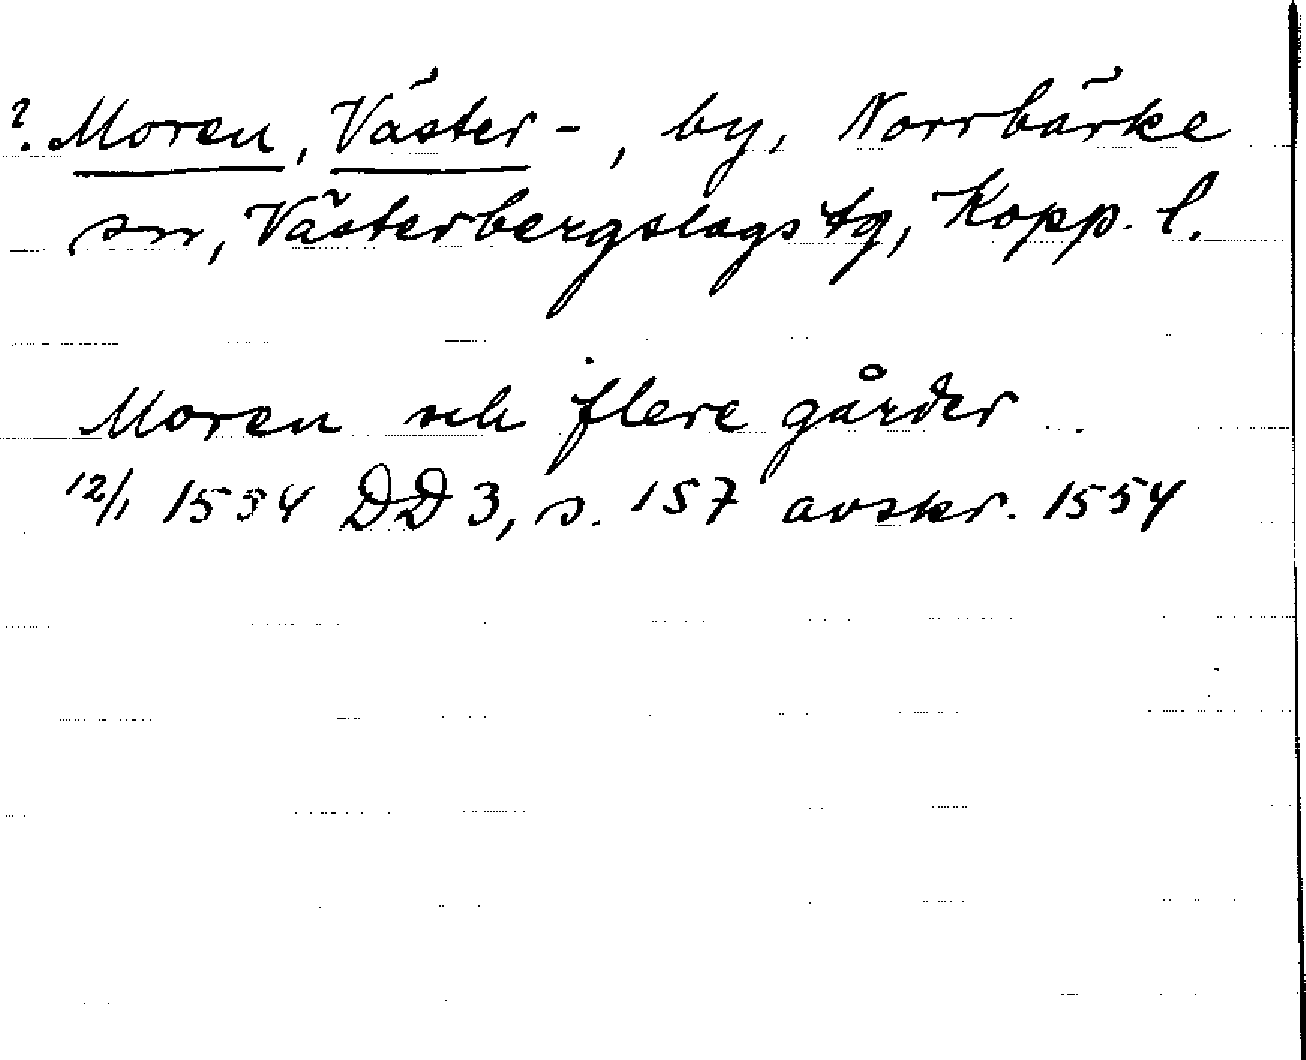 ? Moren, Väster-, by, Norrbärke
sn, Västerbergslags tg, Kopp. l.
Moren och flere gårder
12/1 1534 DD 3, s. 157 avskr. 1554